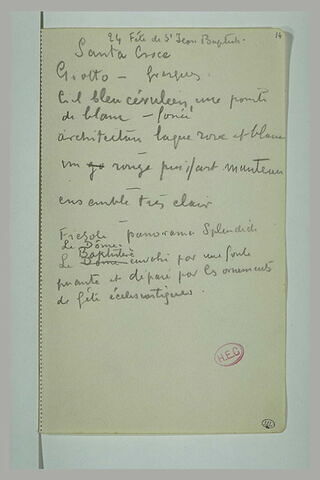 24 Fête de St Jean Baptiste. 14
Santa Croce
Giotto — fresques.
Ciel bleu céruléen, une pointe
de blanc — foncé
architecture laque rose et blanc
un rouge puissant
ensemble très clair
Fiesole — panorama splendide
Le Dôme.
Baptistère
Le Dôme envahi par une foule
puante et déparé par les ornements
de fête écclésiastiques.
H.E.C